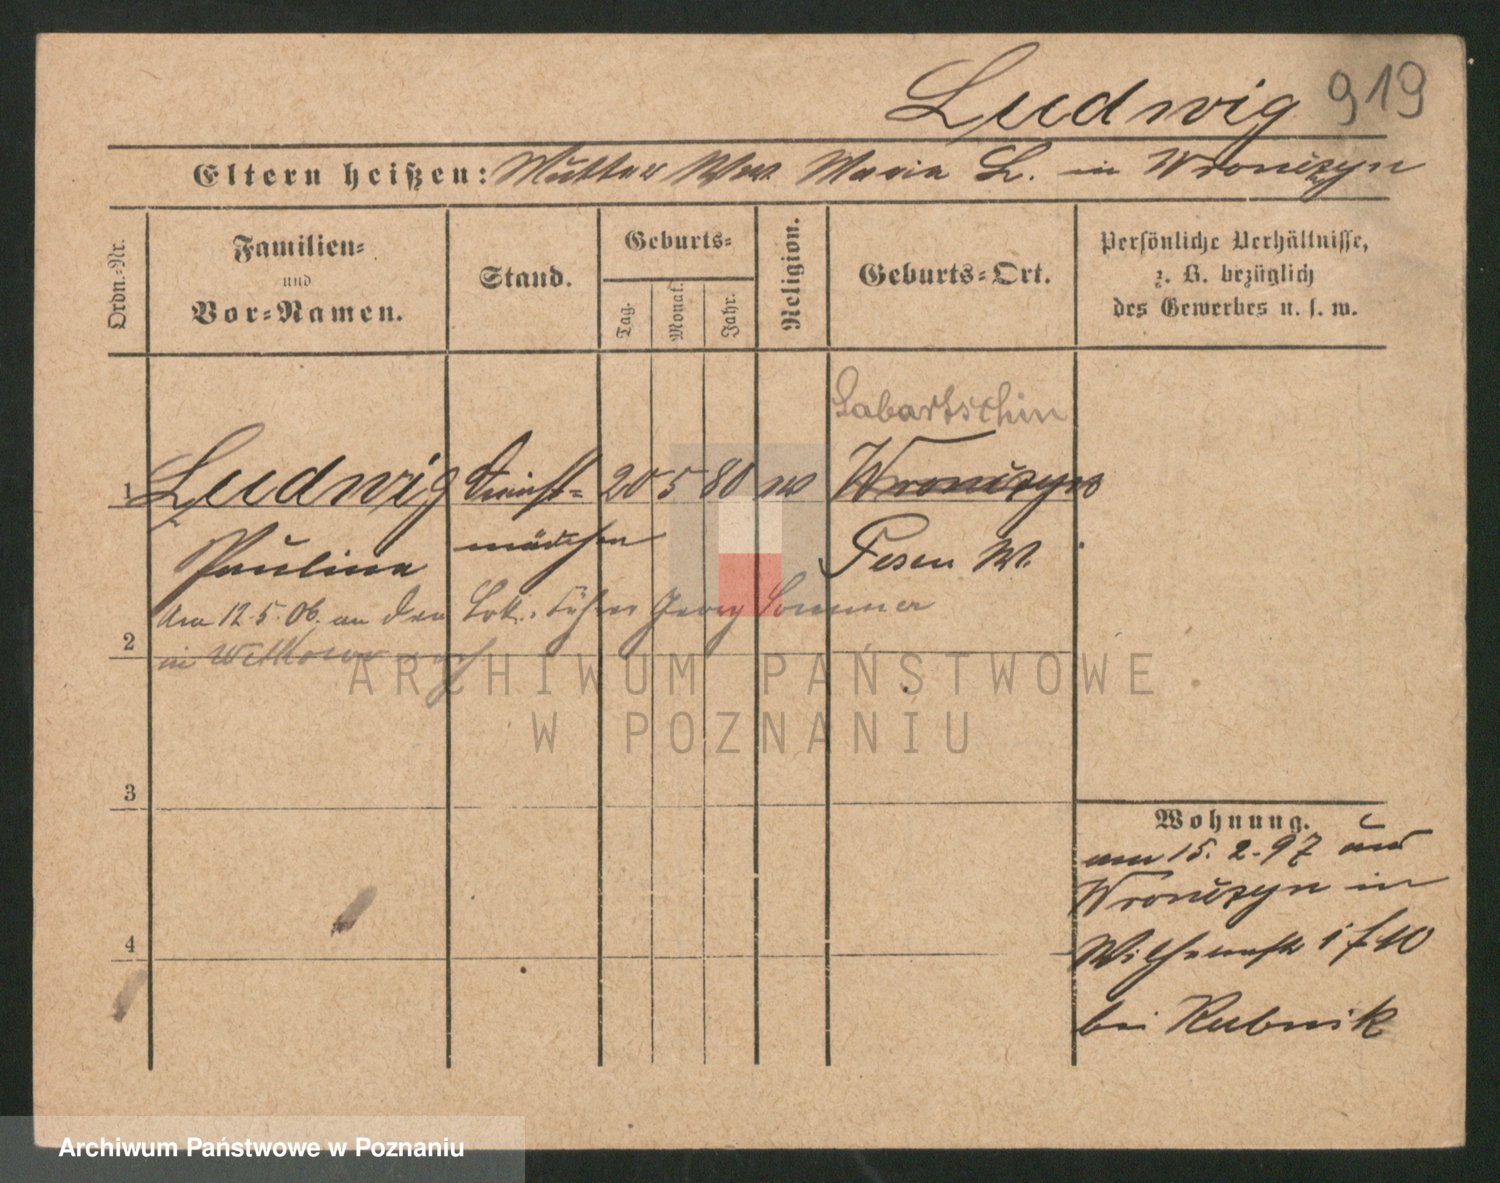 Ludwig 919
Eltern heißen: Mutter Ww. Maria L. in Wronczyn
Ordn.-Nr.
Familien-
und
Vor-Namen.
Stand.
Geburts-
Tag.
Monat.
Jahr.
Religion.
Geburts-Ort.
Persönliche Verhältnisse,
z. B. bezüglich
des Gewerbes u. s. w.
Gabartschin
1 Ludwig Dienst- 20 5 80 Wronczyn
Paulina mädchen Posen W.
Am 12.5.06. an den Lok. Führer Georg Sommer
2
in Witkowo
ARCHIWUM PAŃSTWOWE
W POZNANIU
3
Wohnung.
am 15.2.97 aus
Wronczyn in
4
Wilhelmstr 10
bei Rubnik
Archiwum Państwowe w Poznaniu